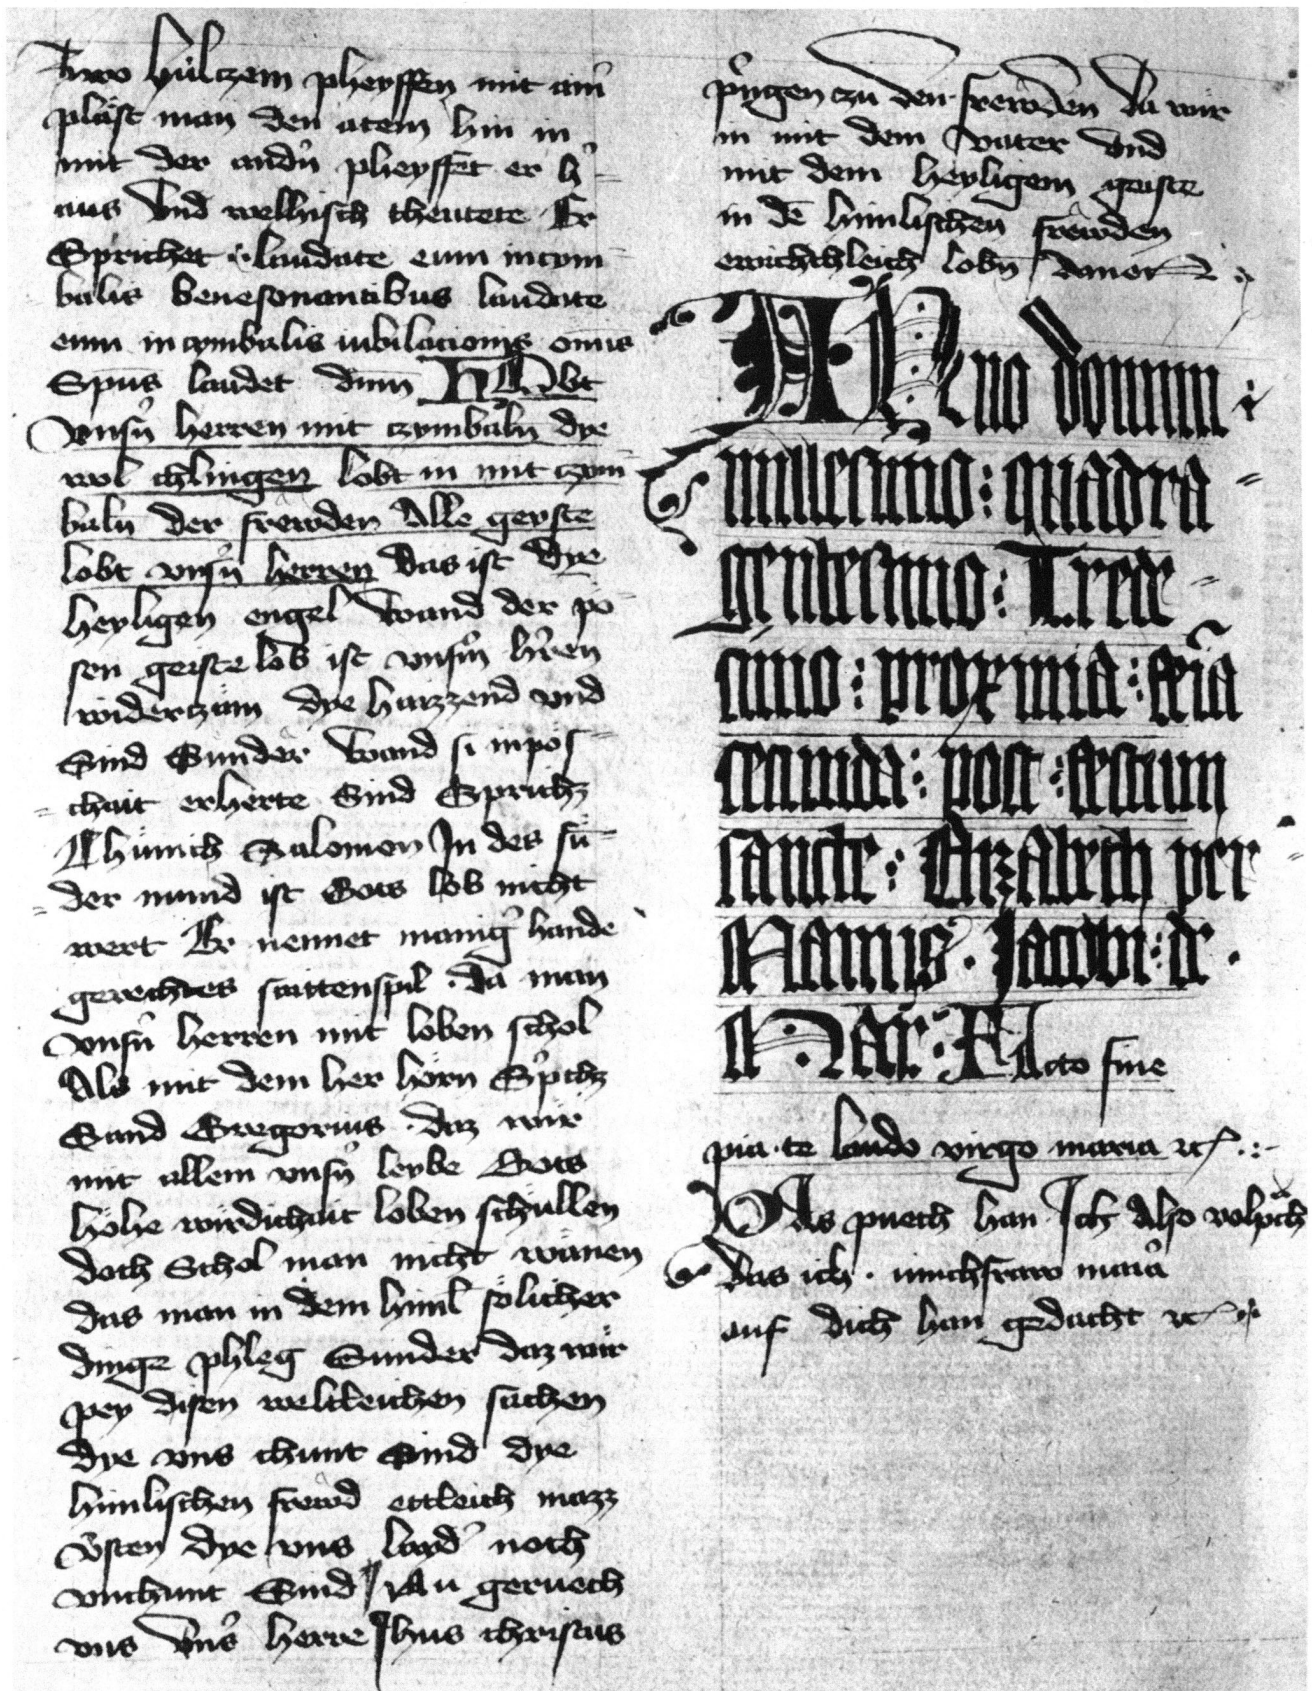 zwo hülczem pheyffen mit ainr̉
pläst man den atem hin in
mit der andn̉ pheyffet er h̉
aus Vnd wellisch theutete Er
Sprichet laudate eum in cym
balis benesonantibus laudate
eum in cymbalis iubilacionis omīs
Spūs laudet dnm̄ Lobt
vnsn̉ herren mit czymbaln̄ dye
wol chlingen lobt in mit czym
baln̄ der frewden Alle geyste
lobt vnsn̉ herren das ist dye
heyligen engel Wand der po
sen geiste lob ist vnsm̉ hr̉en
widerczäm dye hazzend vnd
Sind Sunder Wand si in pos
chait erherte Sind Sprichz
Chünich Salomon In des sū
der mund ist Gots lob nicht
wert Er nennet manig̉ hande
gerechtes saittenspil · da man
vnsn̉ herren mit loben schol
Als mit dem her horn Sp̉chz
Sand Gregorius · daz wir
mit allem vnsn̉ leybe Gots
höhe wirdichait loben schüllen
doch Schol man nicht wänen
das man in dem himl̄ sölicher
dinge phleg Sunder daz wir
pey disen weltleichen sachen
dye vns chunt Sind dye
himlischen frewd ettleich mazz
wysten dye vns layd̉ noch
vnchunt Sind Nu geruech
vns vns̉ herre Jhus christus
pringen czu den frewden da wir
in mit dem Vater Vnd
mit dem heyligem geiste
in dē himlischen frewden
ewichchleich lobn̄ Amen
ANno domini :
millesimo : quadra
gentesimo : Trede
cimo : proxima : feria
secunda : post : festum
sancte : Elyzabeth per
Manus · Jacobi : de ·
Mar : FActo fine
pia · te laudo virgo maria ꝛc
DAs puech han Ich Also volpͣcht
das ich · iunchfraw maria
auf dich han gedacht ꝛc